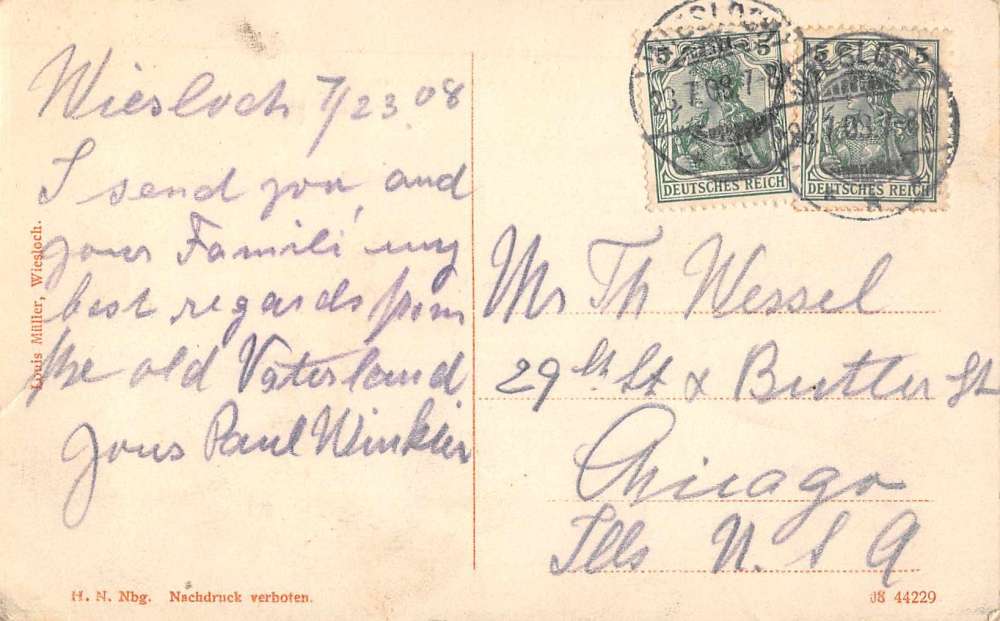 Wiesloch 7/23 08
I send you and
your Famili my
best regards from
the old Vaterland
Jous Paul Winkler
Louis Müller, Wiesloch.
5 5
DEUTSCHES REICH
5 5
DEUTSCHES REICH
Mr Th Wessel
29th St & Butler St
Chicago
Ills U. S A
H. N. Nbg. Nachdruck verboten.
08 44229